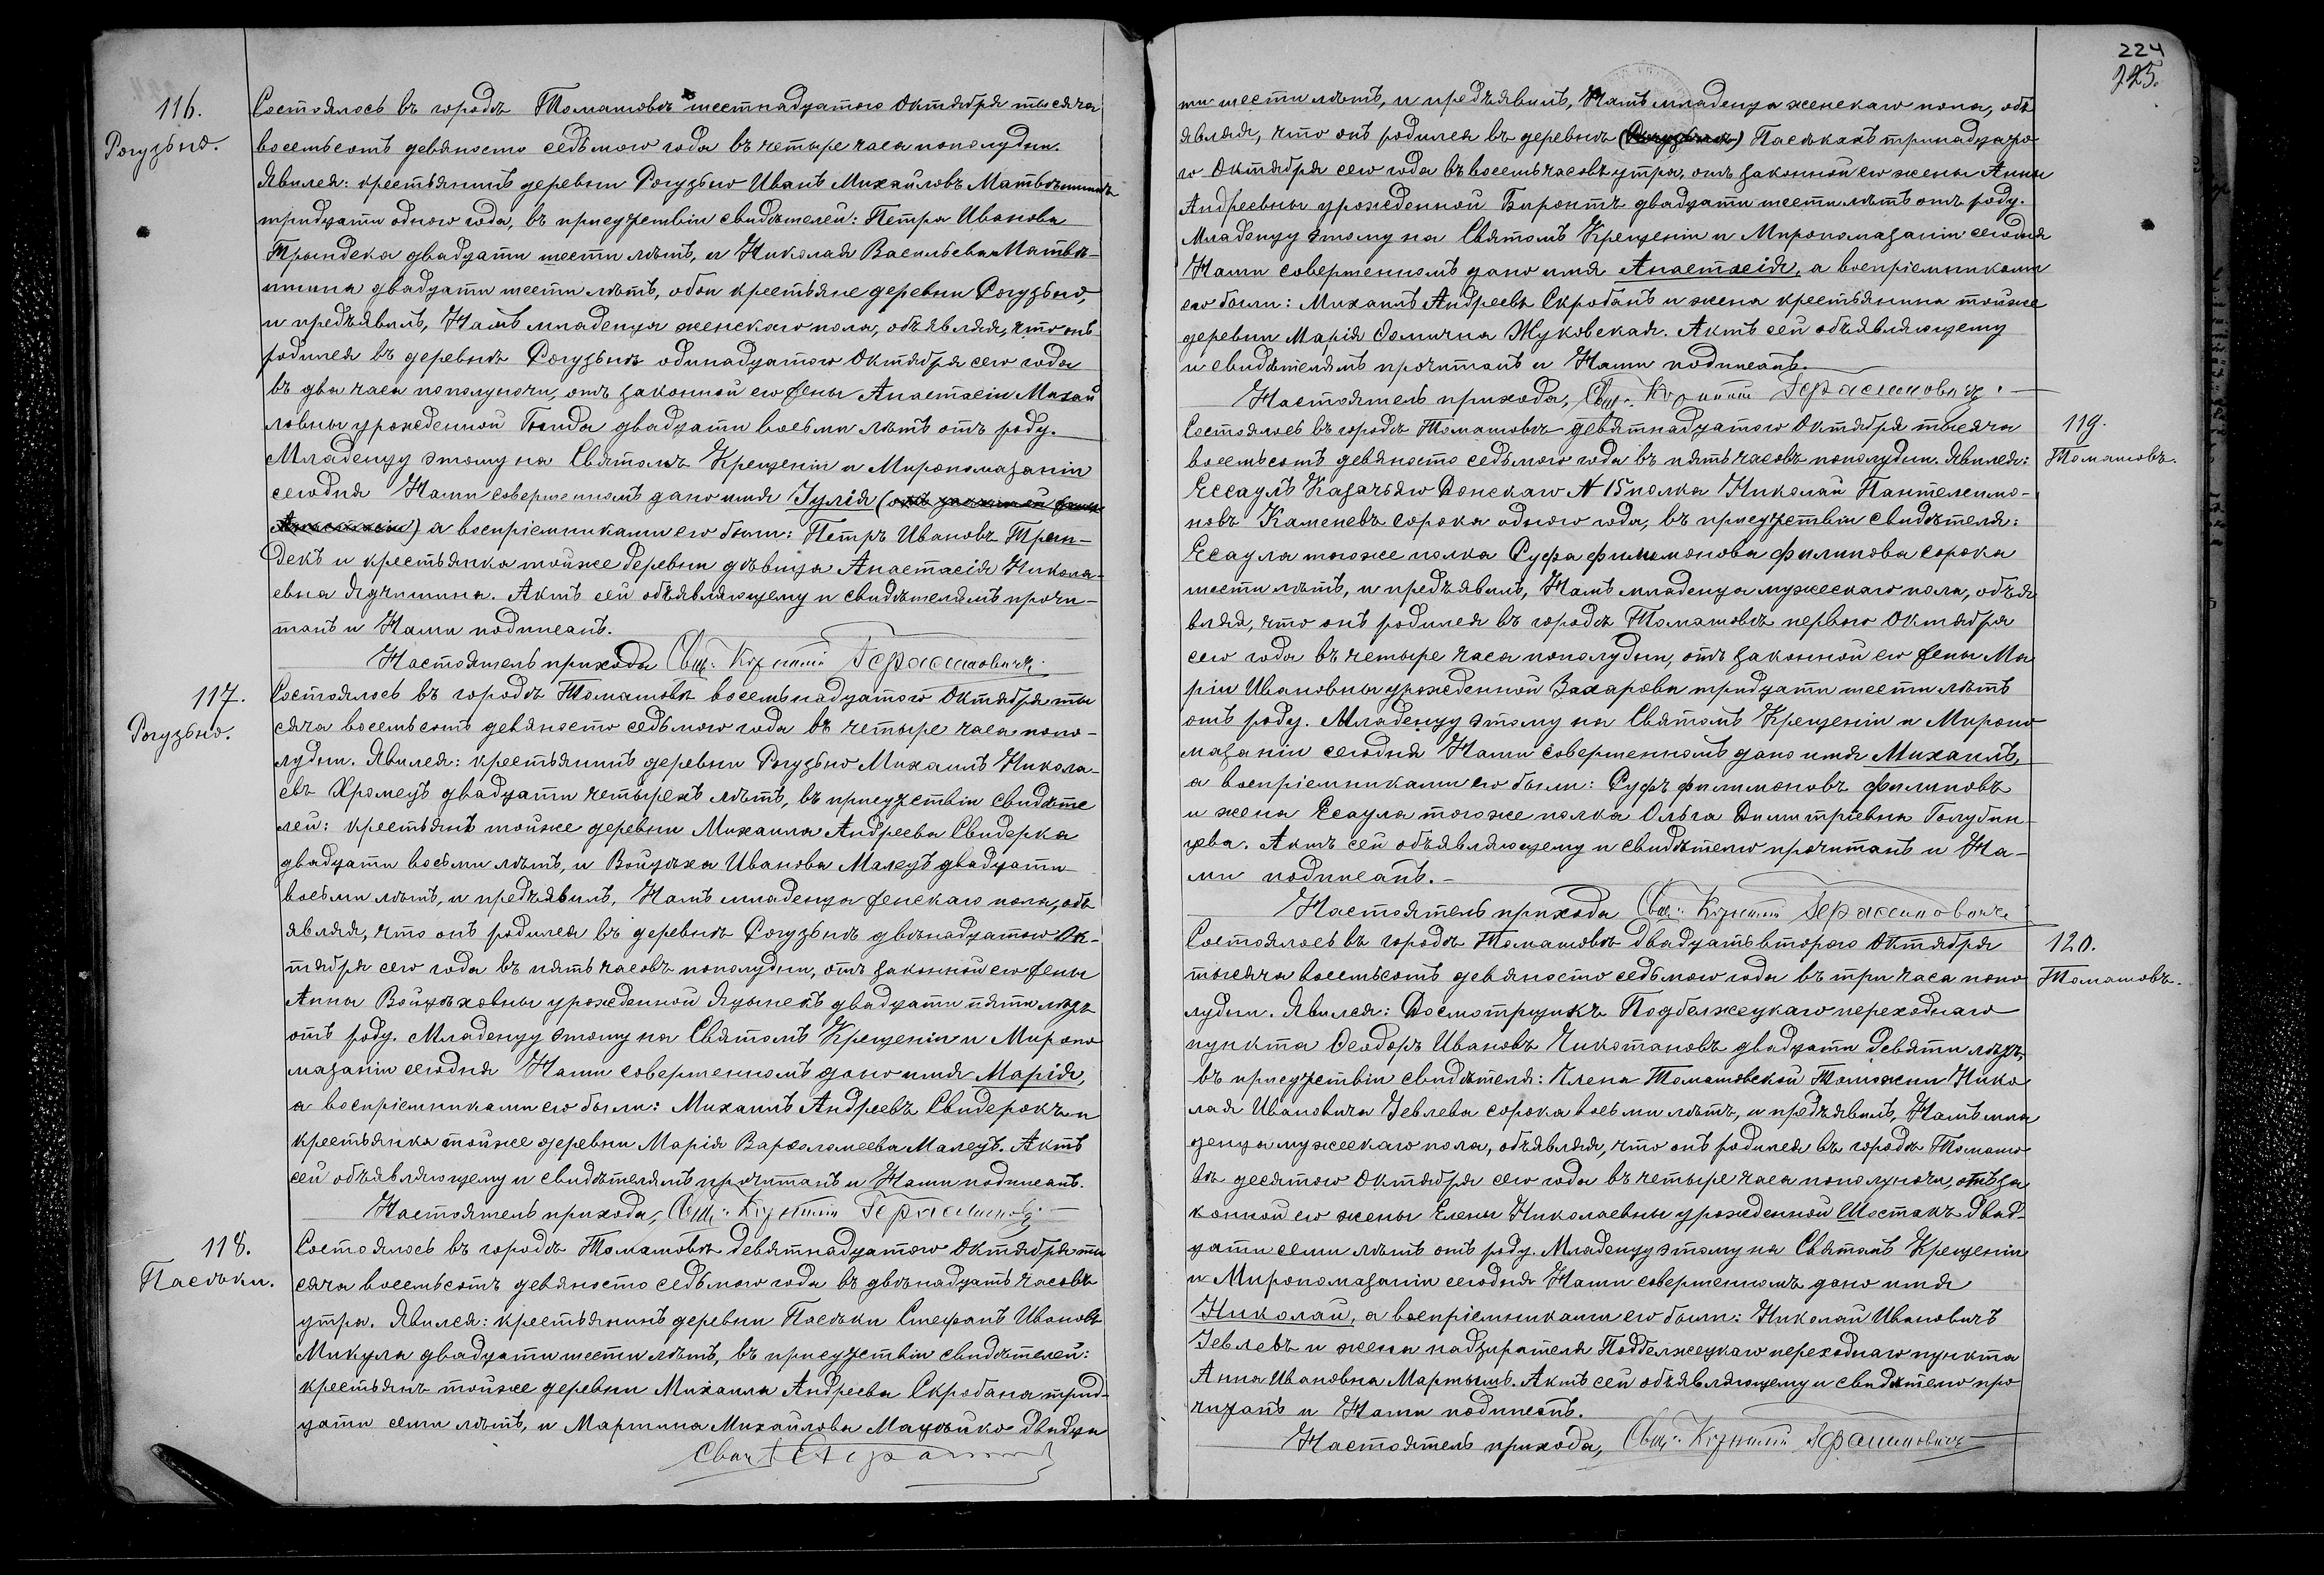 116.
Рогузьно.
Состоялось въ городѣ Томашовѣ шестнадцатого Октября тысяча
восемьсотъ девяносто седьмого года въ четыре часа пополудни.
Явился: крестьянинъ деревни Рогузьно Иванъ Михайловъ Матвѣишинъ
тридцати одного года, въ присутствіи свидѣтелей: Петра Иванова
Трындека двадцати шести лѣтъ, и Николая Васильева Матвѣ-
ишина двадцати шести лѣтъ, обои крестьяне деревни Рогузьно,
и предъявилъ, Намъ младенца женскаго пола, объявляя, что онъ
родился въ деревнѣ Рогузьнѣ одинадцатого Октября сего года
въ два часа пополуночи, отъ законной его жены Анастасіи Михай
ловны урожденной Гнида двадцати восьми лѣтъ отъ роду.
Младенцу этому на Святомъ Крещеніи и Миропомазаніи
сегодня Нами совершенномъ дано имя Іулія (отъ законной жены
Анастасіи) а воспріемниками его были: Петръ Ивановъ Трын-
декъ и крестьянка тойже деревни дѣвица Анастасія Никола-
евна Ядчишина. Актъ сей объявляющему и свидѣтелямъ прочи-
танъ и Нами подписанъ.
Настоятель прихода Свщ. Корнилій Герасимовичъ.
117.
Рогузьно.
Состоялось въ городѣ Томашовѣ восемьнадцатого Октября ты
сяча восемьсотъ девяносто седьмого года въ четыре часа попо-
лудни. Явился: крестьянинъ деревни Рогузьно Михаилъ Никола-
евъ Хромецъ двадцати четырехъ лѣтъ, въ присутствіи свидѣте
лей: крестьянъ тойже деревни Михаила Андреева Свидерка
двадцати восьми лѣтъ, и Войцѣха Иванова Малецъ двадцати
восьми лѣтъ, и предъявилъ, Намъ младенца женскаго пола, объ
являя, что онъ родился въ деревнѣ Рогузьнѣ двѣнадцатого Ок-
тября сего года въ пять часовъ пополудни, отъ законной его жены
Анны Войцѣховны урожденной Яцынекъ двадцати пяти лѣтъ
отъ роду. Младенцу этому на Святомъ Крещеніи и Миропо
мазаніи сегодня Нами совершенномъ дано имя Марія,
а воспріемниками его были: Михаилъ Андреевъ Свидерокъ и
крестьянка тойже деревни Марія Варѳоломеева Малецъ. Актъ
сей объявляющему и свидѣтелямъ прочитанъ и Нами подписанъ.
Настоятель прихода, Свщ. Корнилій Герасимовичъ
118.
Пасѣки.
Состоялось въ городѣ Томашовѣ девятнадцатого Октября ты
сяча восемьсотъ девяносто седьмого года въ двѣнадцать часовъ
утра. Явился: крестьянинъ деревни Пасѣки Стефанъ Ивановъ
Микула двадцати шести лѣтъ, въ присутствіи свидѣтелей:
крестьянъ тойже деревни Михаила Андреева Скробана трид-
цати семи лѣтъ, и Мартина Михайлова Мацѣйко двадца
224
225.
ти шести лѣтъ, и предъявилъ, Намъ младенца женскаго пола, объ
являя, что онъ родился въ деревнѣ (Рогузьнѣ) Пасѣкахъ тринадцато
го Октября сего года въ восемь часовъ утра, отъ законной его жены Анны
Андреевны урожденной Биронтъ двадцати шести лѣтъ отъ роду.
Младенцу этому на Святомъ Крещеніи и Миропомазаніи сегодня
Нами совершенномъ дано имя Анастасія, а воспріемниками
его были: Михаилъ Андреевъ Скробанъ и жена крестьянина тойже
деревни Марія Ѳомична Жуковская. Актъ сей объявляющему
и свидѣтелямъ прочитанъ и Нами подписанъ.
Настоятель прихода, Свщ. Корнилій Герасимовичъ.
119.
Томашовъ.
Состоялось въ городѣ Томашовѣ девятнадцатого Октября тысяча
восемьсотъ девяносто седьмого года въ пять часовъ пополудни. Явился:
Ессаулъ Казачьяго Донскаго N 15 полка Николай Пантелеимо-
новъ Каменевъ сорока одного года, въ присутствіи свидѣтеля:
Есаула тогоже полка Руфа Филимонова Филипова сорока
шести лѣтъ, и предъявилъ, Намъ младенца мужескаго пола, объя
вляя, что онъ родился въ городѣ Томашовѣ первого Октября
сего года въ четыре часа пополудни, отъ законной его жены Ма
ріи Ивановны урожденной Захарова тридцати шести лѣтъ
отъ роду. Младенцу этому на Святомъ Крещеніи и Миропо
мазаніи сегодня Нами совершенномъ дано имя Михаилъ,
а воспріемниками его были: Руфъ Филимоновъ Филиповъ
и жена Есаула тогоже полка Ольга Димитріевна Голубин-
цева. Актъ сей объявляющему и свидѣтелю прочитанъ и На-
ми подписанъ.
Настоятель прихода Свщ. Корнилій Герасимовичъ
120.
Томашовъ.
Состоялось въ городѣ Томашовѣ двадцать второго Октября
тысяча восемьсотъ девяносто седьмого года въ три часа попо
лудни. Явился: Досмотрщикъ Подбелжецкаго переходнаго
пункта Ѳеодоръ Ивановъ Чикотановъ двадцати девяти лѣтъ,
въ присутствіи свидѣтеля: Члена Томашовской Таможни Нико
лая Ивановича Іевлева сорока восьми лѣтъ, и предъявилъ, Намъ мла
денца мужескаго пола, объявляя, что онъ родился въ городѣ Томашо
вѣ десятого Октября сего года въ четыре часа пополуночи, отъ за
конной его жены Елены Николаевны урожденной Шостакъ двад-
цати семи лѣтъ отъ роду. Младенцу этому на Святомъ Крещеніи
и Миропомазаніи сегодня Нами совершенномъ дано имя
Николай, а воспріемниками его были: Николай Ивановичъ
Іевлевъ и жена надзирателя Подбелжецкаго переходнаго пункта
Анна Ивановна Мартышъ. Актъ сей объявляющему и свидѣтелю про
читанъ и Нами подписанъ.
Настоятель прихода, Свщ. Корнилій Герасимовичъ